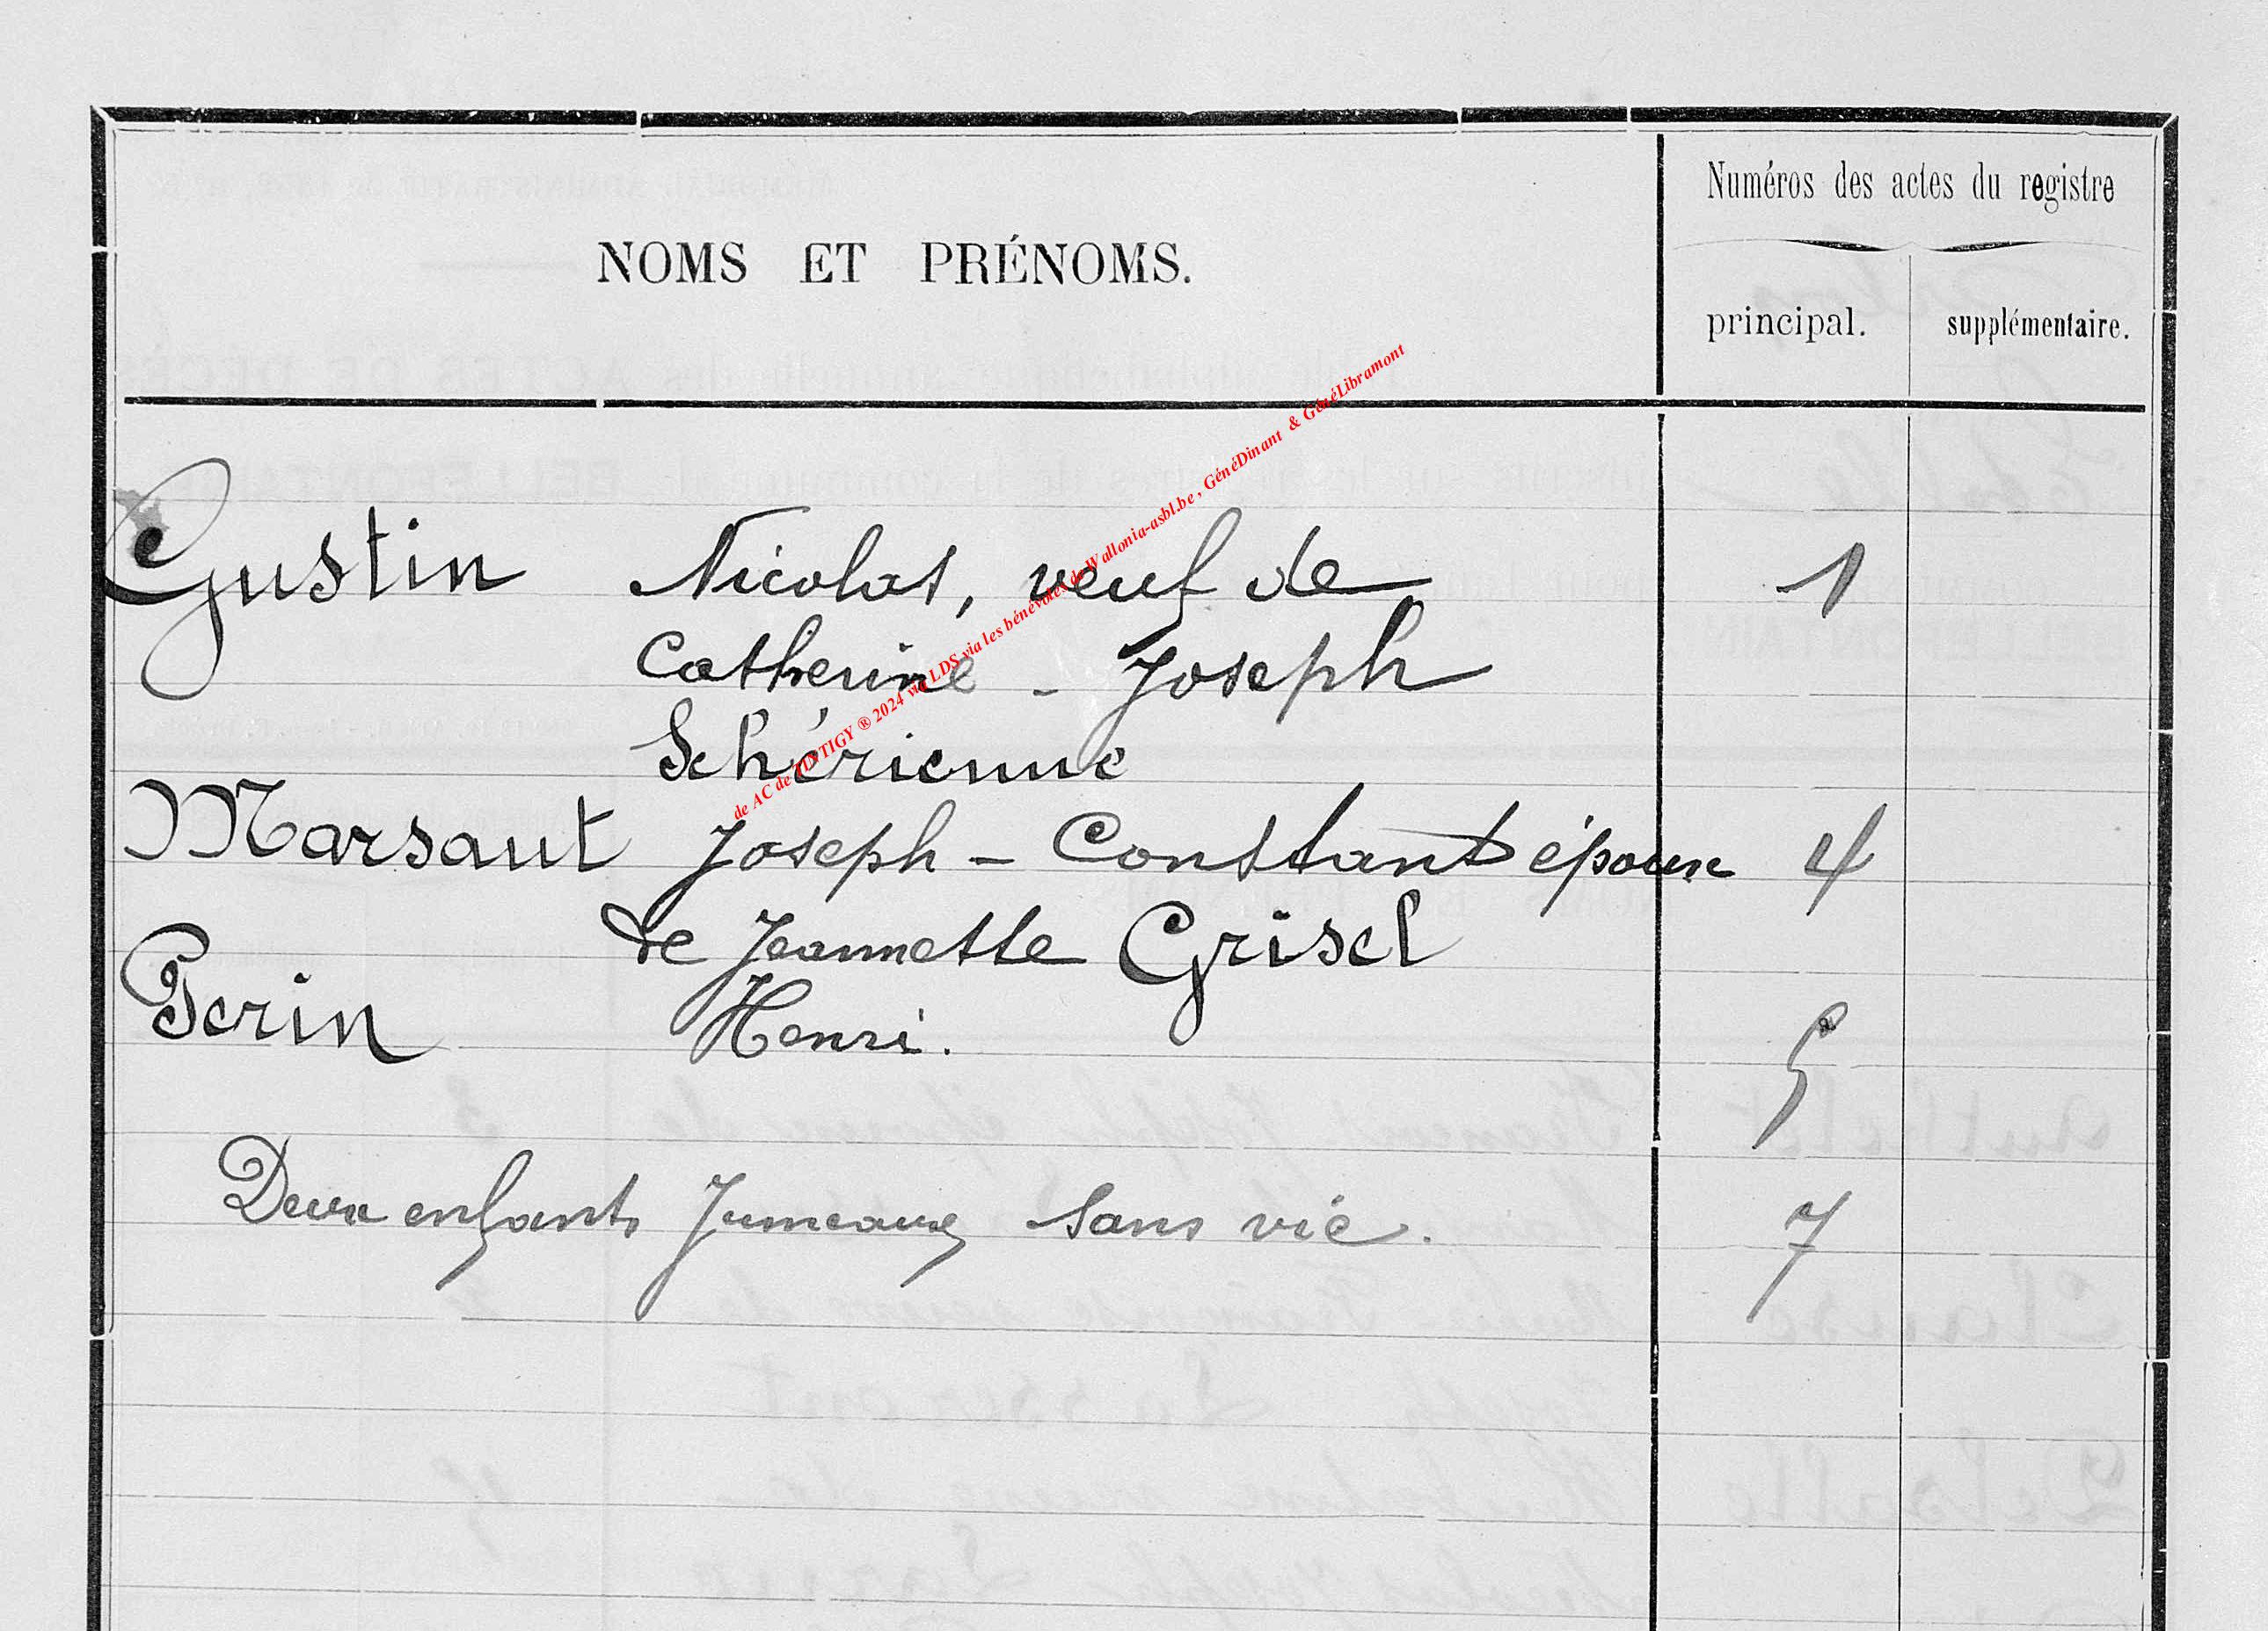 Numéros des actes du registre
NOMS ET PRÉNOMS.
principal. supplémentaire.
Gustin Nicolas, veuf de 1
Catherine - Joseph
Schérienne
Marsaut Joseph - Constant époux 4
de Jeannette Grisel
Perin Henri. 5
Deux enfants Jumeaux sans vie. 7
de AC de TINTIGY ® 2024 via LDS via les bénévoles de Wallonia-asbl.be, GénéDinant & GénéLibramont